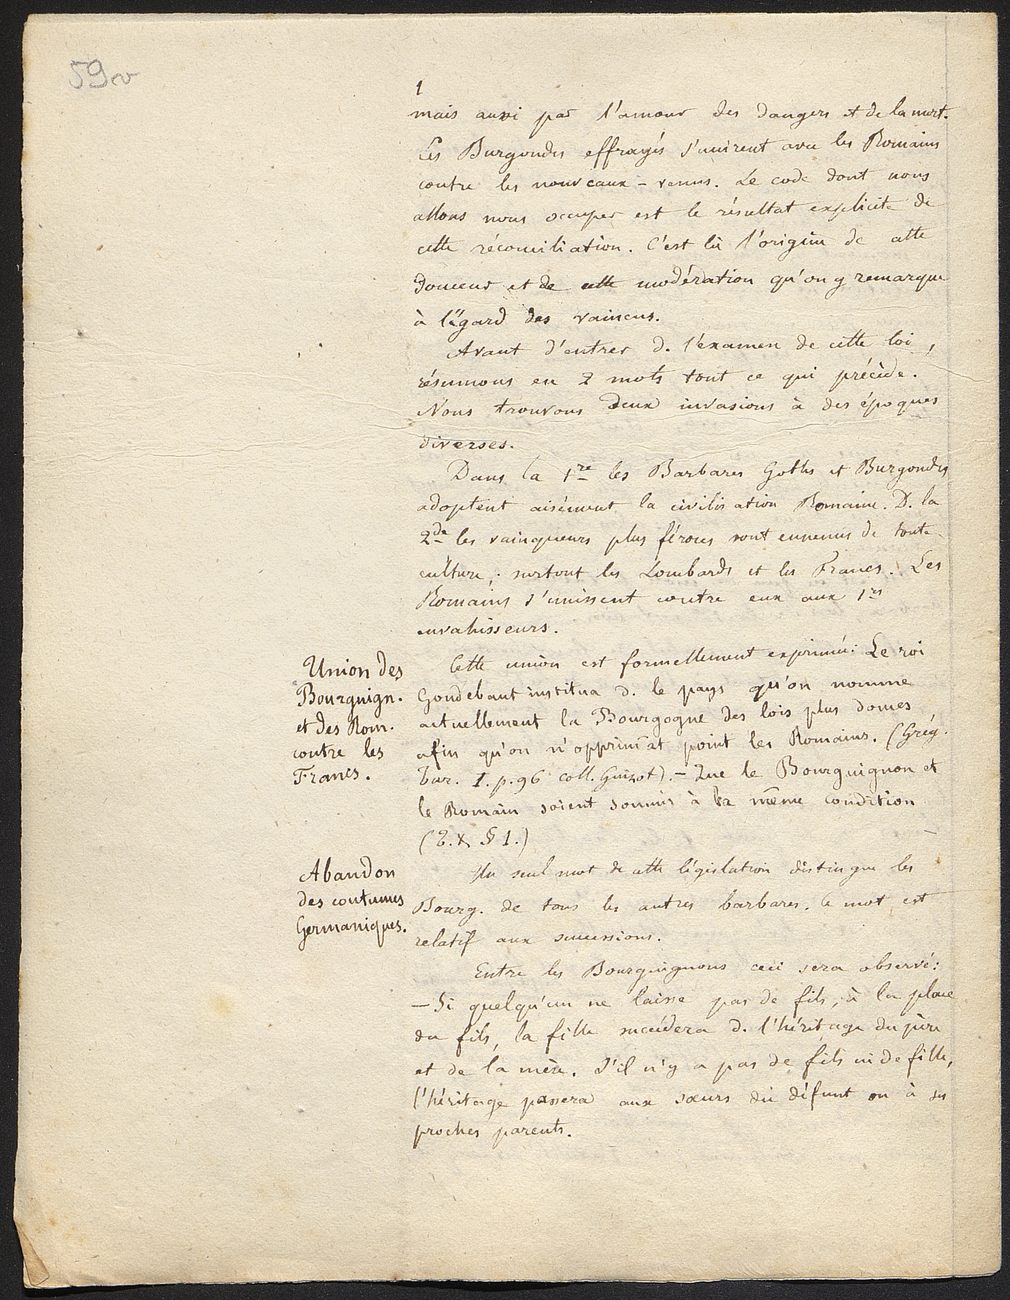 59v
1
mais aussi par l'amour des dangers et de la mort.
Les Burgondes effrayés s'unirent avec les Romains
contre les nouveaux-venus. Le code dont nous
allons nous occuper est le résultat explicite de
cette réconciliation. C'est là l'origine de cette
douceur et de cette modération qu'on y remarque
à l'égard des vaincus.
Avant d'entrer d. l'examen de cette loi,
résumons en 2 mots tout ce qui précède.
Nous trouvons deux invasions à des époques
diverses.
Dans la 1re les Barbares Goths et Burgondes
adoptent aisément la civilisation Romaine. D. la
2de les vainqueurs plus féroces sont ennemis de toute
culture, surtout les Lombards et les Francs. Les
Romains s'unissent contre eux aux 1ers
envahisseurs.
Union des
Bourguign.
et des Rom.
contre les
Francs.
Cette union est formellement exprimée: Le roi
Gondebaut institua d. le pays qu'on nomme
actuellement la Bourgogne des lois plus douces
afin qu'on n'opprimât point les Romains. (Grég.
Tur. I. p. 96 coll. Guizot). — Que le Bourguignon et
le Romain soient soumis à la même condition
(T. X. § 1.)
Abandon
des coutumes
Germaniques.
Un seul mot de cette législation distingue les
Bourg. de tous les autres barbares. Ce mot est
relatif aux successions.
Entre les Bourguignons ceci sera observé:
— Si quelqu'un ne laisse pas de fils, à la place
du fils, la fille succédera d. l'héritage du père
et de la mère. S'il n'y a pas de fils ni de fille,
l'héritage passera aux sœurs du défunt ou à ses
proches parents.